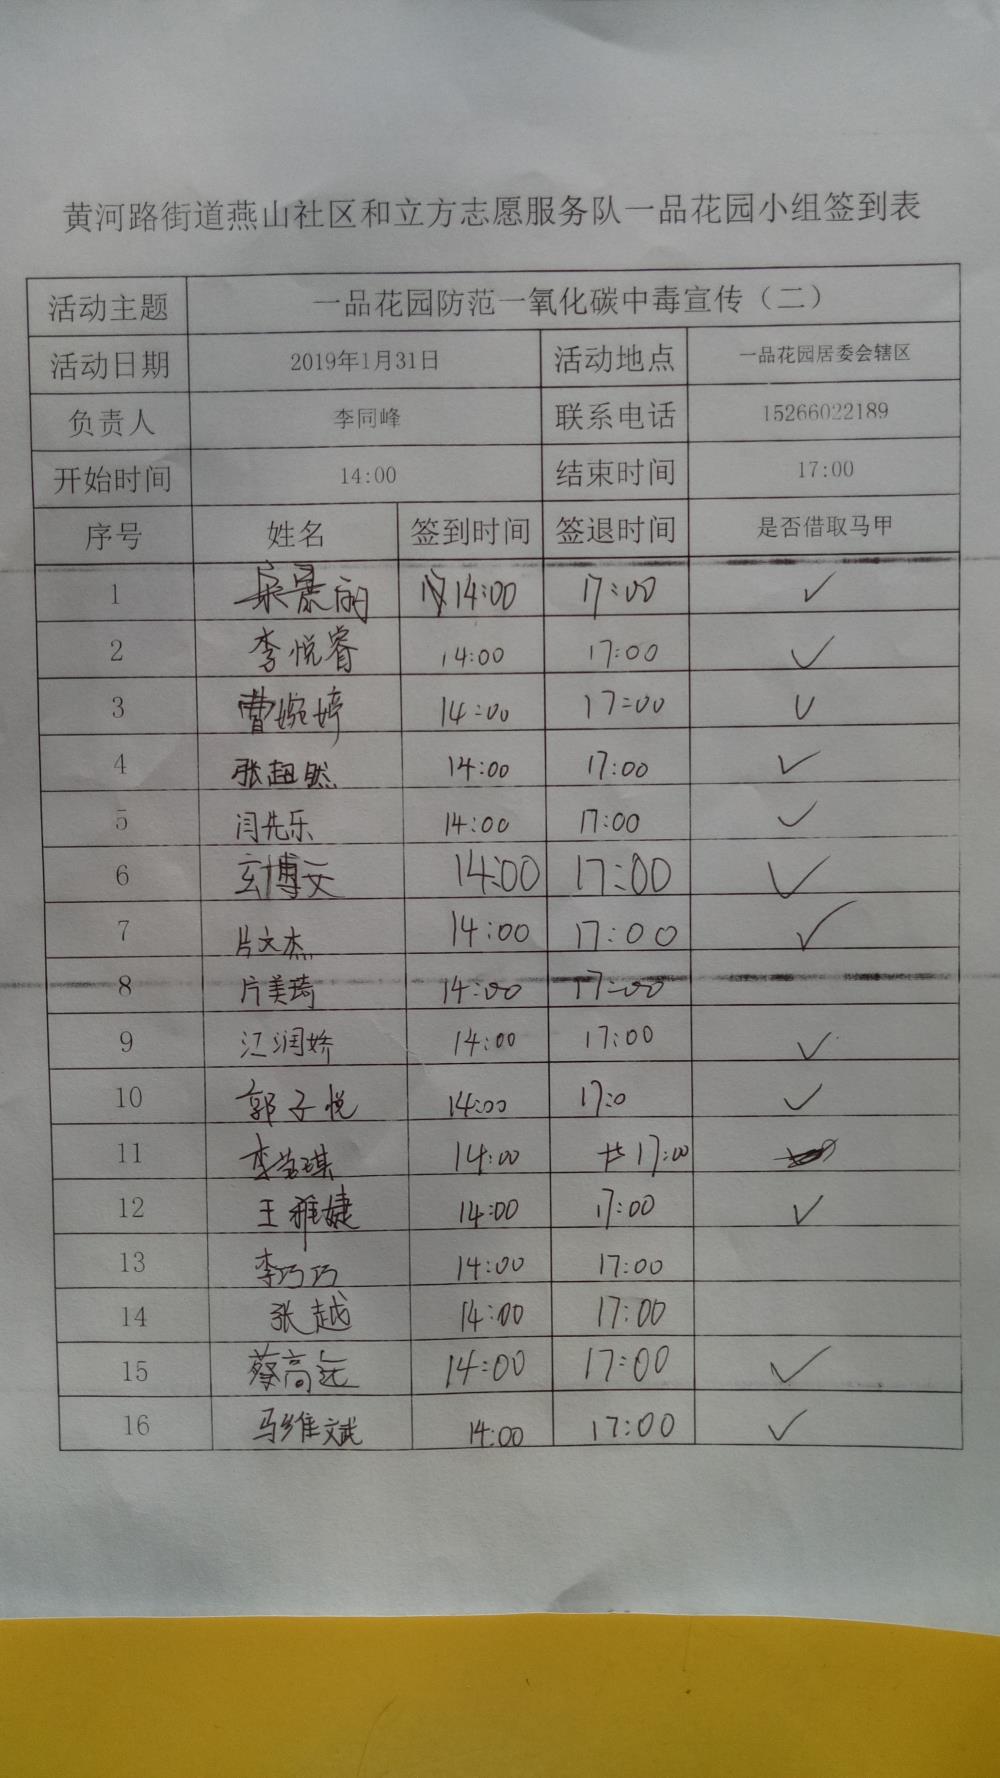 黄河路街道燕山社区和立方志愿服务队一品花园小组签到表
活动主题 一品花园防范一氧化碳中毒宣传（二）
活动日期 2019年1月31日 活动地点 一品花园居委会辖区
负责人 李同峰 联系电话 15266022189
开始时间 14:00 结束时间 17:00
序号 姓名 签到时间 签退时间 是否借取马甲
1 14:00 17:00 ✓
2 李悦睿 14:00 17:00 ✓
3 曹婉婷 14:00 17:00 ✓
4 张超然 14:00 17:00 ✓
5 闫先乐 14:00 17:00 ✓
6 玄博文 14:00 17:00 ✓
7 片文杰 14:00 17:00 ✓
8 片美琦 14:00 17:00
9 江润娇 14:00 17:00 ✓
10 郭子悦 14:00 17:0 ✓
11 14:00 17:00
12 王雅婕 14:00 17:00 ✓
13 李巧巧 14:00 17:00
14 张越 14:00 17:00
15 蔡高远 14:00 17:00 ✓
16 马维斌 14:00 17:00 ✓